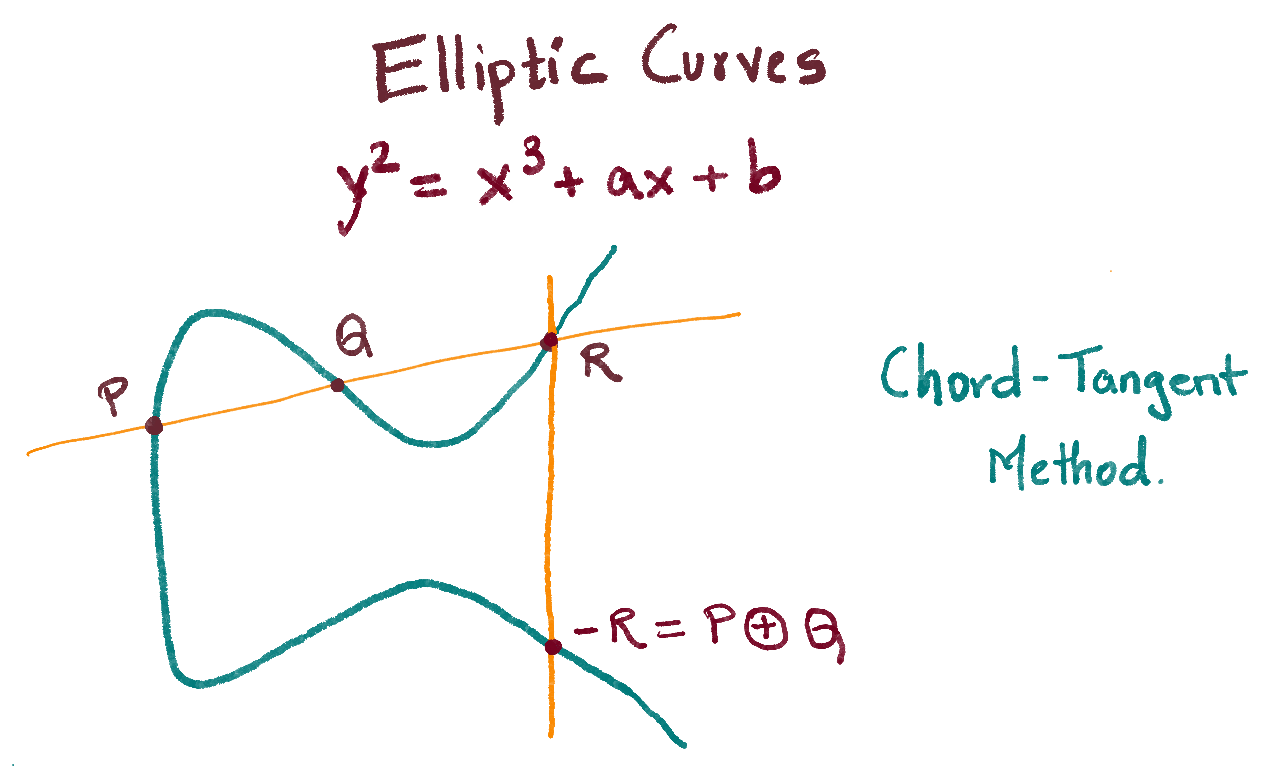 Elliptic Curves
y² = x³ + ax + b
Q
P
R
Chord-Tangent
Method.
-R = P ⊕ Q